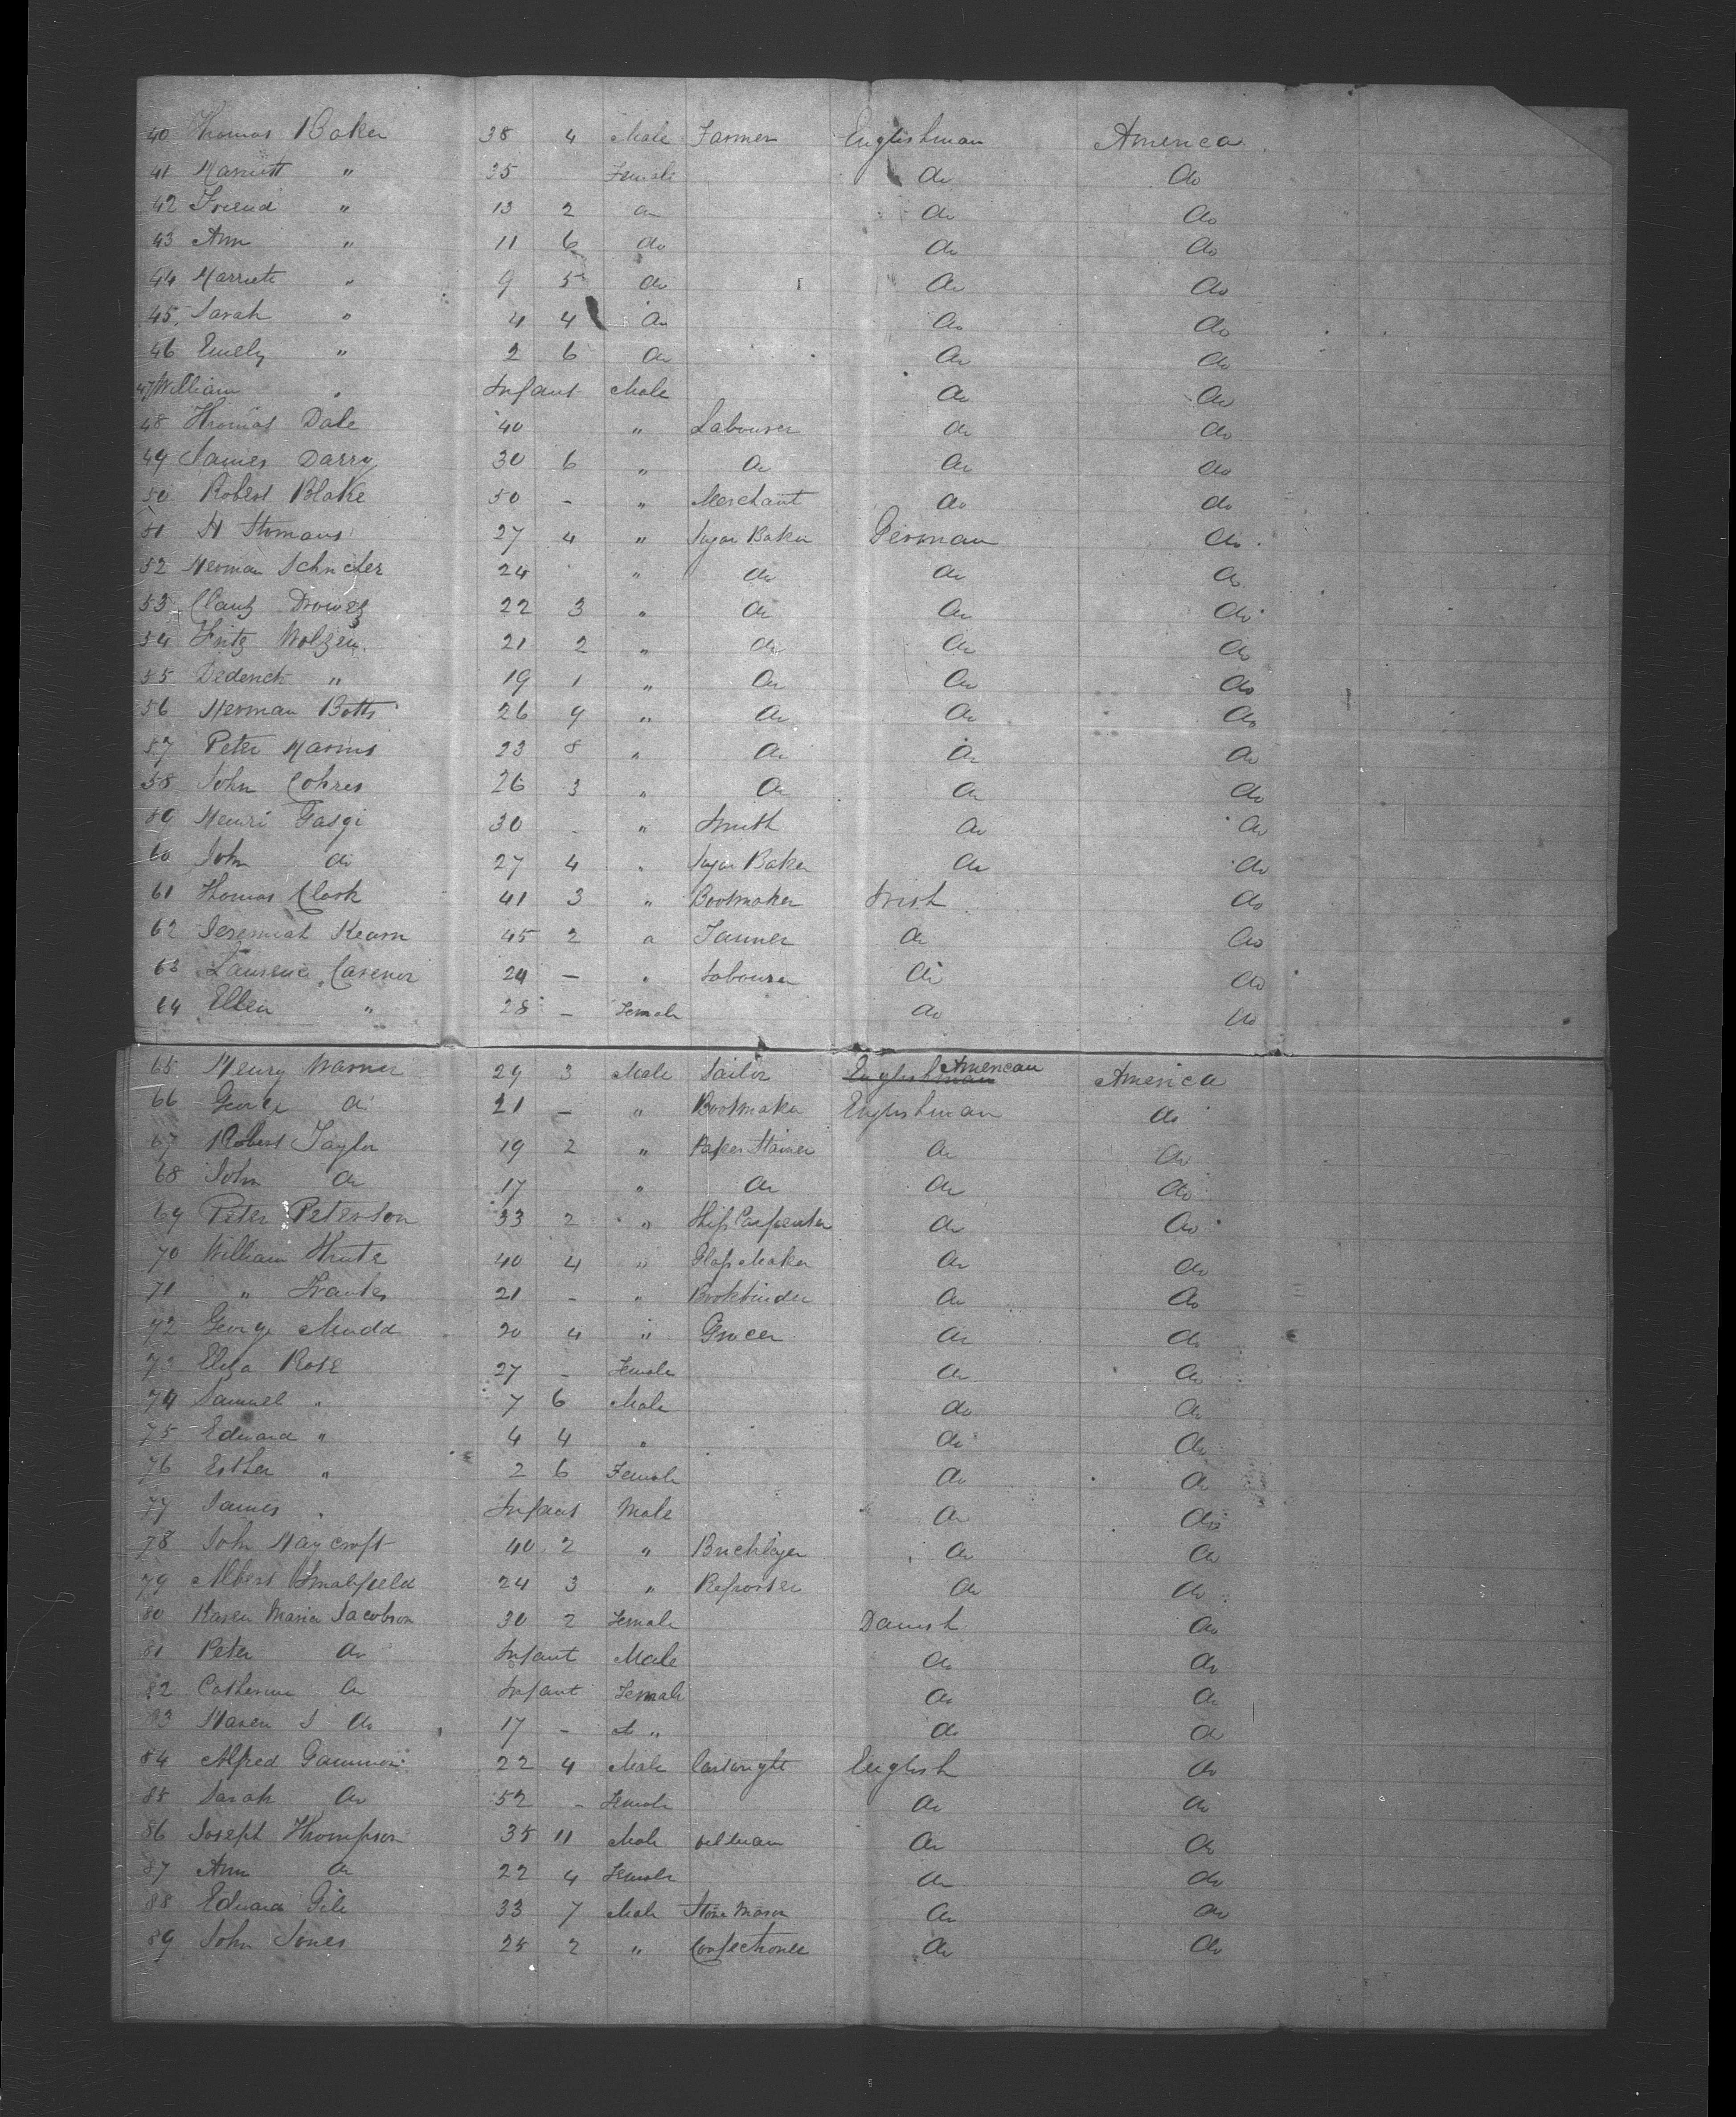 40 Thomas Baker 38 4 Male Farmer Englishman America
41 Harriett " 35 Female do do
42 Friend " 13 2 do do do
43 Ann " 11 6 do do do
44 Harriett " 9 5 do do do
45 Sarah " 4 4 do do do
46 Emely " 2 6 do do do
47 William " Infant Male do do
48 Thomas Dale 40 " Labourer do do
49 James Darry 30 6 " do do do
50 Robert Blake 50 - " Merchant do do
51 H Thomans 27 4 " Sugar Baker German do
52 Herman 24 " do do do
53 Clauz 22 3 " do do do
54 Fritz Wolzen 21 2 " do do do
55 Dederick " 19 1 " do do do
56 Herman Botts 26 9 " do do do
57 Peter Harms 23 8 " do do do
58 John Cohres 26 3 " do do do
59 Henri Fasgi 30 - " Smith do do
60 John do 27 4 " Sugar Baker do do
61 Thomas Clark 41 3 " Bootmaker Irish do
62 Jeremiah Kearn 45 2 " Tanner do do
63 Laurence Cavenor 24 - " Labourer do do
64 Ellen " 28 - Female do do
65 Henry Warner 29 3 Male Tailor Englishman American America
66 George do 21 - " Bootmaker Englishman do
67 Robert Taylor 19 2 " Paper Stainer do do
68 John do 17 " do do do
69 Peter Peterson 33 2 " Ship Carpenter do do
70 William 40 4 " Glass Maker do do
71 " 21 - " Bookbinder do do
72 George Mudd 20 4 " Grocer do do
73 Eliza Rose 27 - Female do do
74 Samuel " 7 6 Male do do
75 Edward " 4 4 " do do
76 Esther " 2 6 Female do do
77 James " Infant Male do do
78 John Haycroft 40 2 " Bricklayer do do
79 Albert Smalfield 24 3 " Reporter do do
80 Karen Maria Jacobson 30 2 Female Danish do
81 Peter do Infant Male do do
82 Catherine do Infant Female do do
83 Maren J do 17 - do " do do
84 Alfred Gammon 22 4 Male Cartwright English do
85 Sarah do 52 - Female do do
86 Joseph Thompson 35 11 Male oilman do do
87 Ann do 22 4 Female do do
88 Edward Gile 33 7 Male Stone Mason do do
89 John Jones 25 2 " Confectioner do do